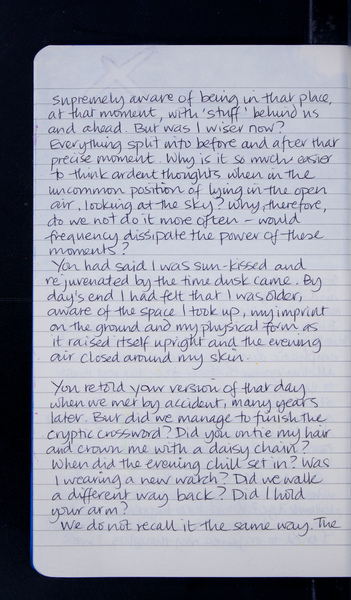 supremely aware of being in that place,
at that moment, with 'stuff' behind us
and ahead. But was I wiser now?
Everything split into before and after that
precise moment. Why is it so much easier
to think ardent thoughts when in the
uncommon position of lying in the open
air, looking at the sky? Why, therefore,
do we not do it more often – would
frequency dissipate the power of these
moments?
You had said I was sun-kissed and
rejuvenated by the time dusk came. By
day's end I had felt that I was older,
aware of the space I took up, my imprint
on the ground and my physical form as
it raised itself upright and the evening
air closed around my skin.
You retold your version of that day
when we met by accident, many years
later. But did we manage to finish the
cryptic crossword? Did you untie my hair
and crown me with a daisy chain?
When did the evening chill set in? Was
I wearing a new watch? Did we walk
a different way back? Did I hold
your arm?
We do not recall it the same way. The